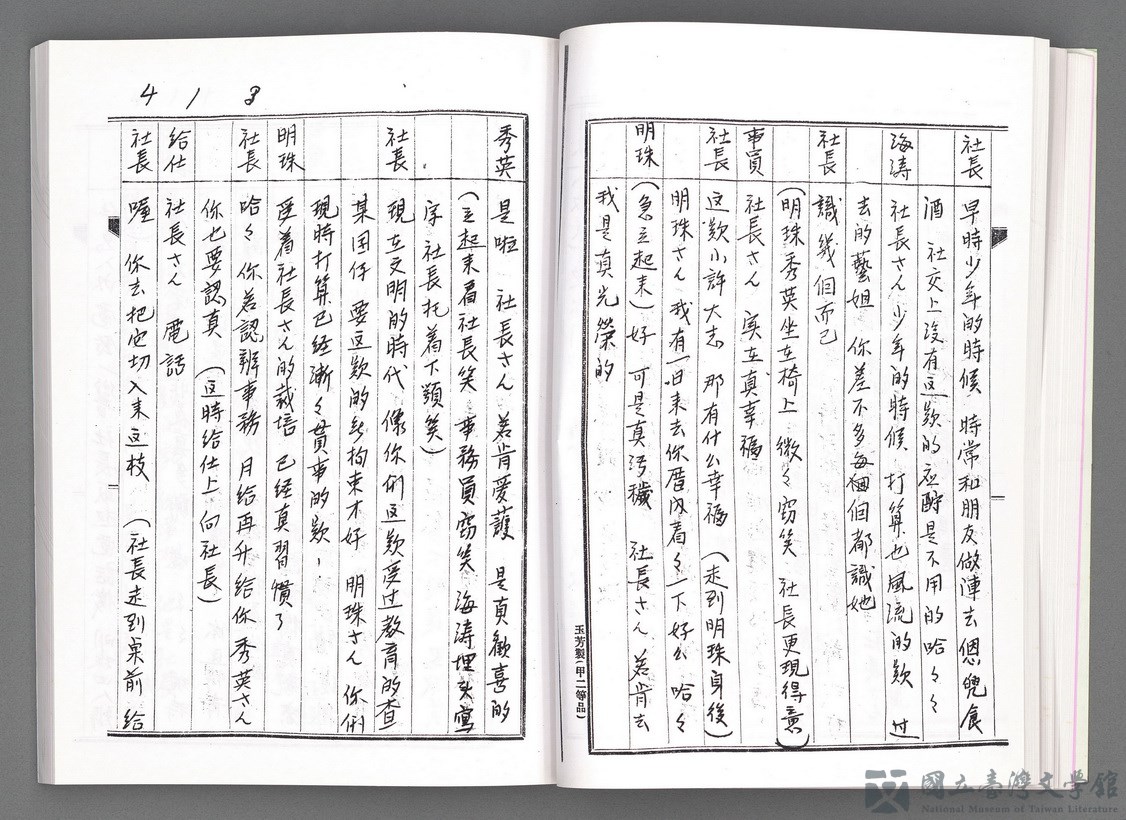 社長 早時少年的時候 時常和朋友做陣去偲兜食
酒 社交上沒有這欵的应酧是不用的哈々々
海濤 社長さん少年的時候 打算也風流的欵 过
去的藝妲 你差不多每個個都識她
社長 識幾個而已
(明珠秀英坐在椅上 微々窃笑 社長更現得意)
事員 社長さん 実在真幸福
社長 這欵小許大志 那有什么幸福 (走到明珠身後)
明珠さん 我有一日来去你厝内看々一下好么 哈々
明珠 (急立起来) 好 可是真汚穢 社長さん 若肯去
我是真光榮的
玉芳製(甲二等品)
4 1 3
秀英 是啦 社長さん 若肯愛護 是真歡喜的
(立起来看社長笑 事務員窃笑 海濤埋头寫
字 社長托着下顎笑)
社長 現在文明的時代 像你們這欵受过教育的查
某囝仔 要這欵的無拘束才好 明珠さん 你們
現時打算已經漸々貫事的欵、
明珠 受着社長さん的栽培 已経真習慣了
社長 哈々 你若認辨事務 月給再升給你 秀英さん
你也要認真 (這時給仕上向社長)
給仕 社長さん 電話
社長 喔 你去把他切入来這枝 (社長走到桌前 給
國立臺灣文學館
National Museum of Taiwan Literature